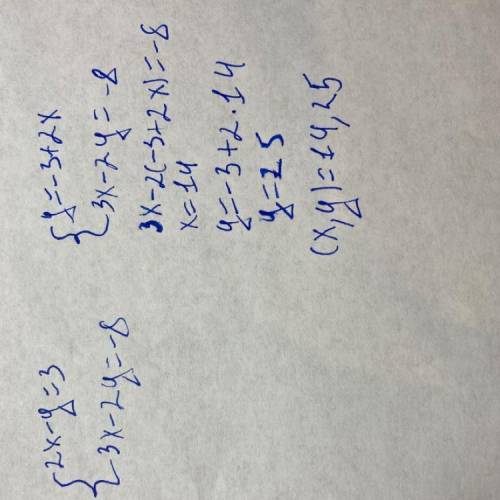 {2x-y=3
{3x-2y=-8
{y=-3+2x
{3x-2y=-8
3x-2(-3+2x)=-8
x=14
y=-3+2·14
y=25
(x,y)=14,25